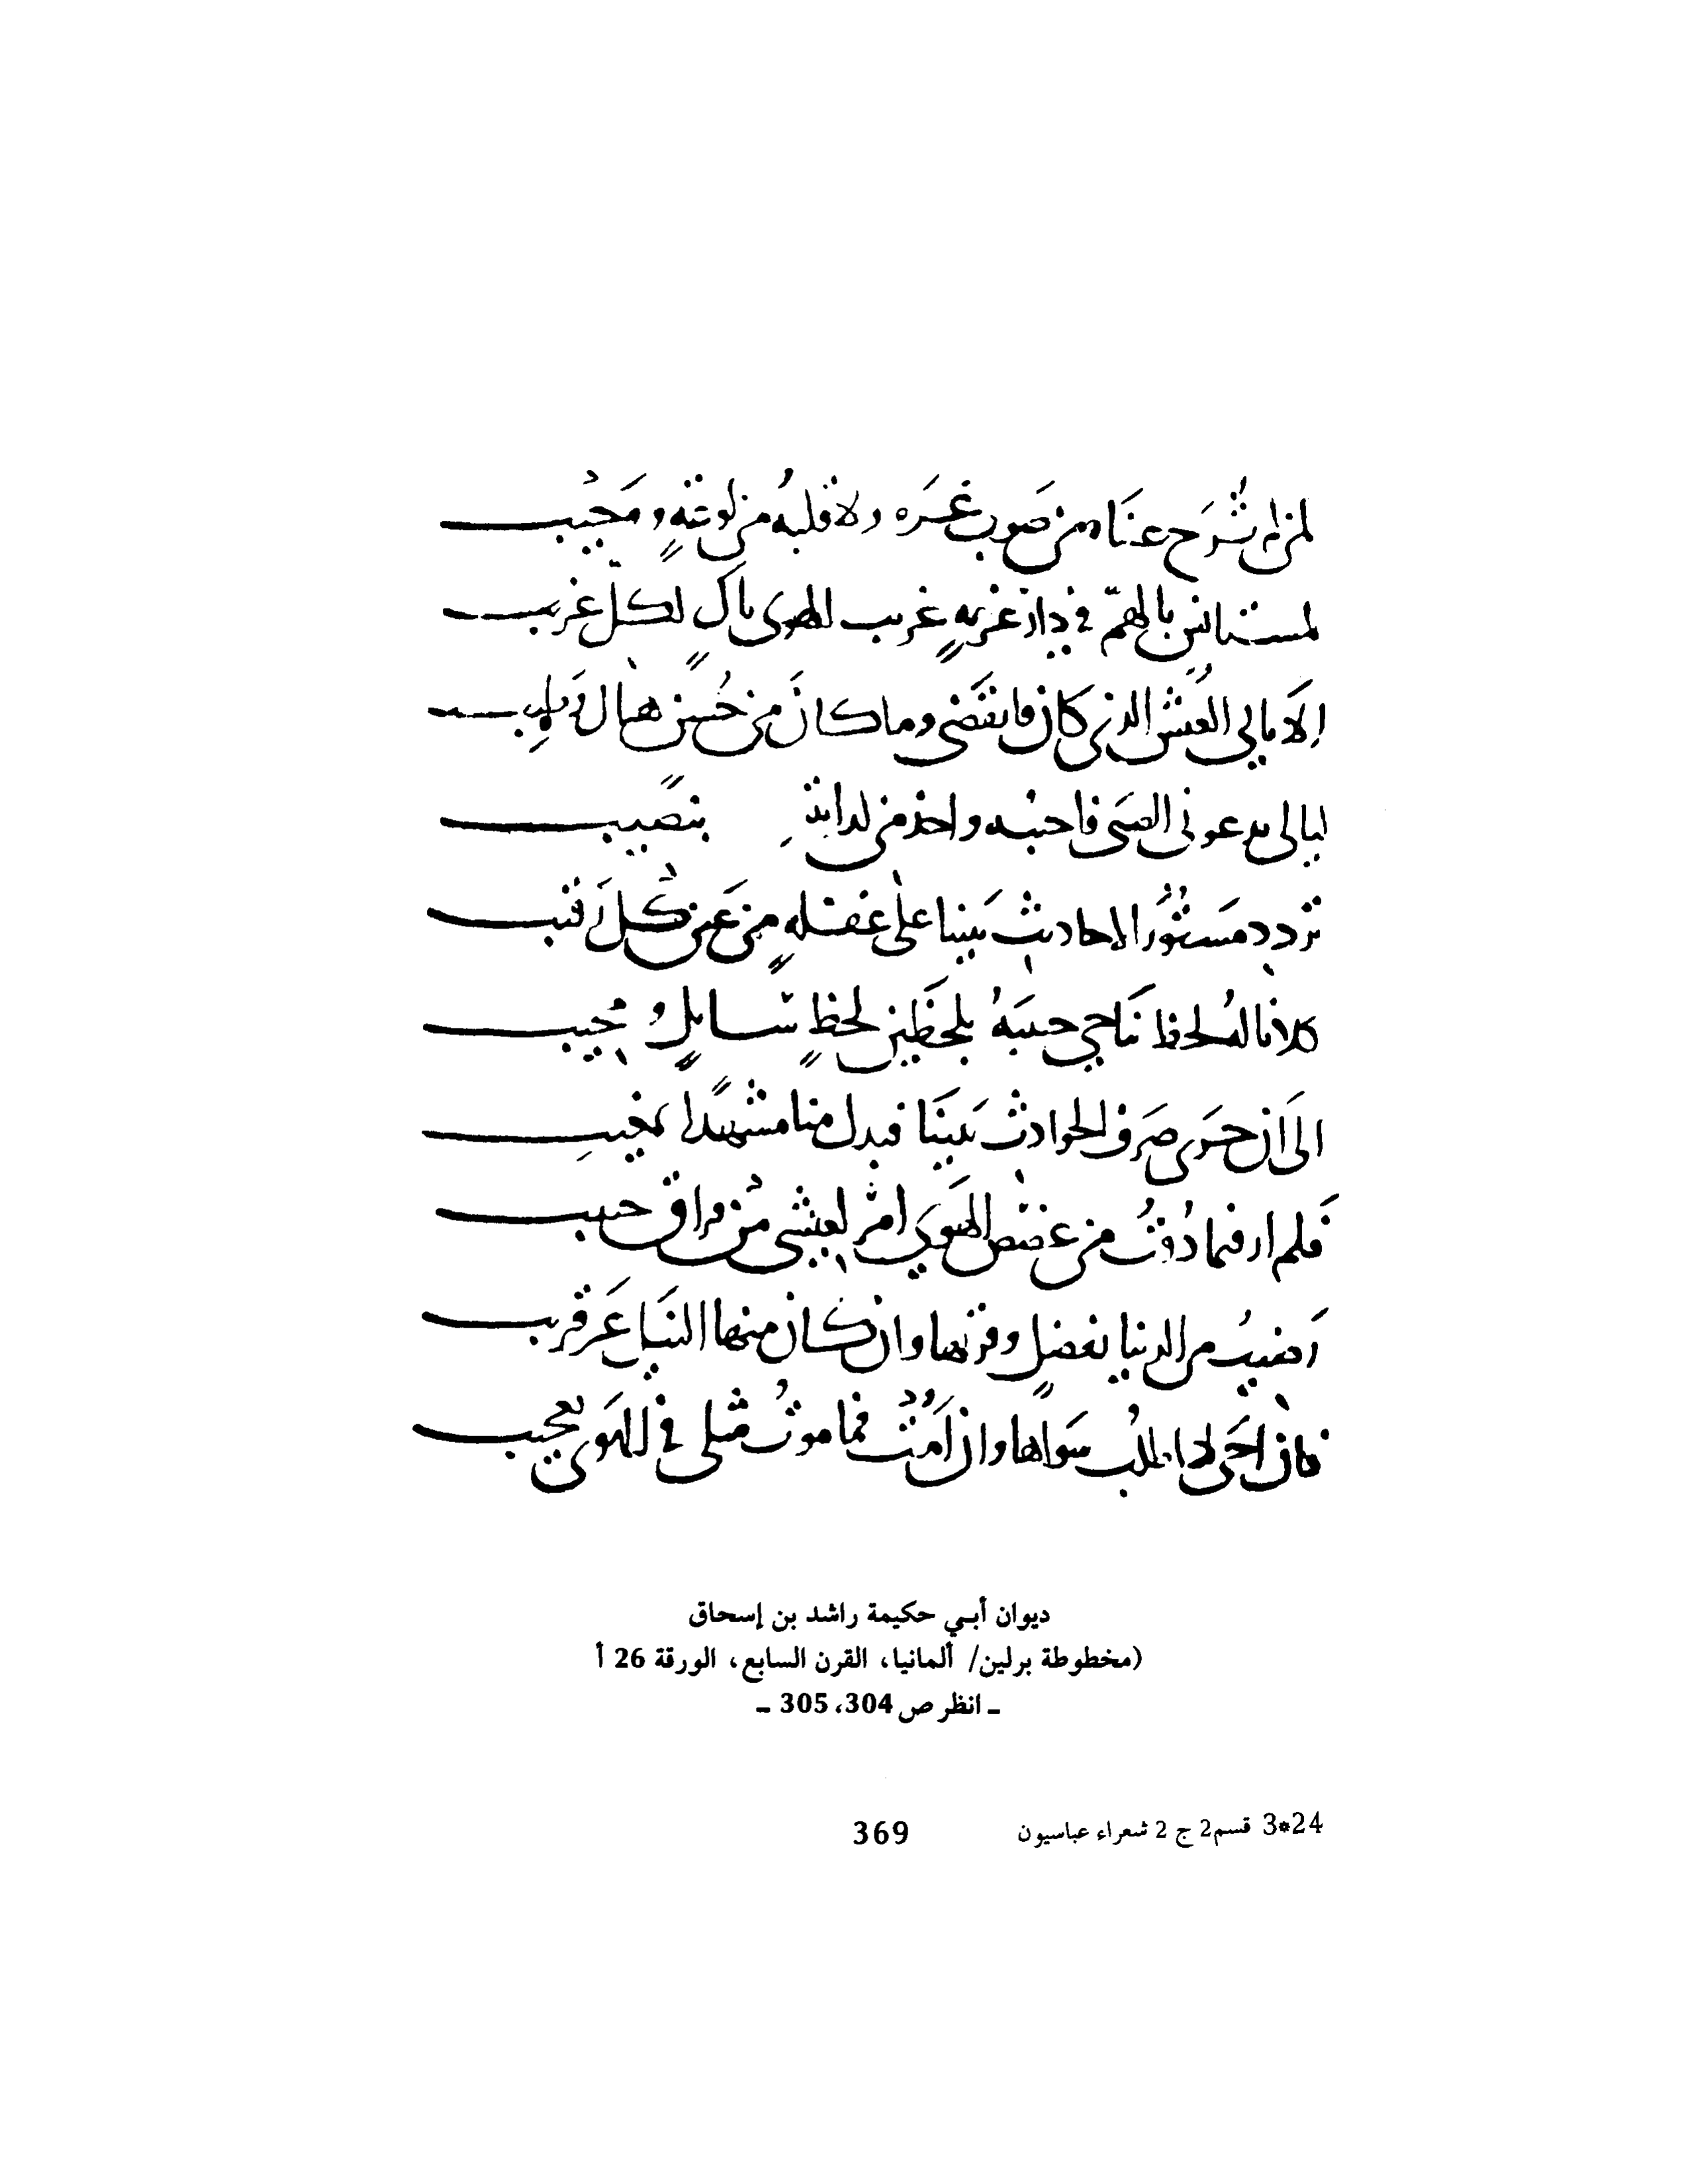 لمن لم تُشرَح عنَاه من صَوب عَبرَه ولا قلبهُ من لوعَةٍ ومَجيب
لمستانس بالهمّ في دار غربةٍ غريب الهوى باكٍ لكلّ غريب
الا يالي العَيش الذي كان فانقَضى وما كانَ من حُسنٍ هنالك وَطيب
ليالي يدعونى الصبَى فاجيبُه واخذ من لذاته بنصَيب
تردد مَستُورَ الاحاديث بَيننا على غفلةٍ من عَين كل رَقيب
كلانا له لحظ يَناجي حبيبَهُ بلحظَين لحظٍ سَايلٍ ومُجيب
الى اَن جَرَى صَرَف الحوادث بَينَنا فبدل منا مشهدًا بمَغيبِ
فَلم ار فيما ذُقتُ من غصَص الهَوَى امرّ لعيشى مُن فراق حبيب
رَضيتُ من الدنيا بفضلٍ وفرتها وان كان منها النَيل غَير قريب
فان اَحىَ لم اطلب سَواها وان اَمُتْ فما موتُ مثلى في الهَوى بعجيب
ديوان أبي حكيمة راشد بن إسحاق
(مخطوطة برلين/ ألمانيا، القرن السابع، الورقة 26 أ
ـ انظر ص 304، 305 ـ
3*24 قسم2 ج 2 شعراء عباسيون
369